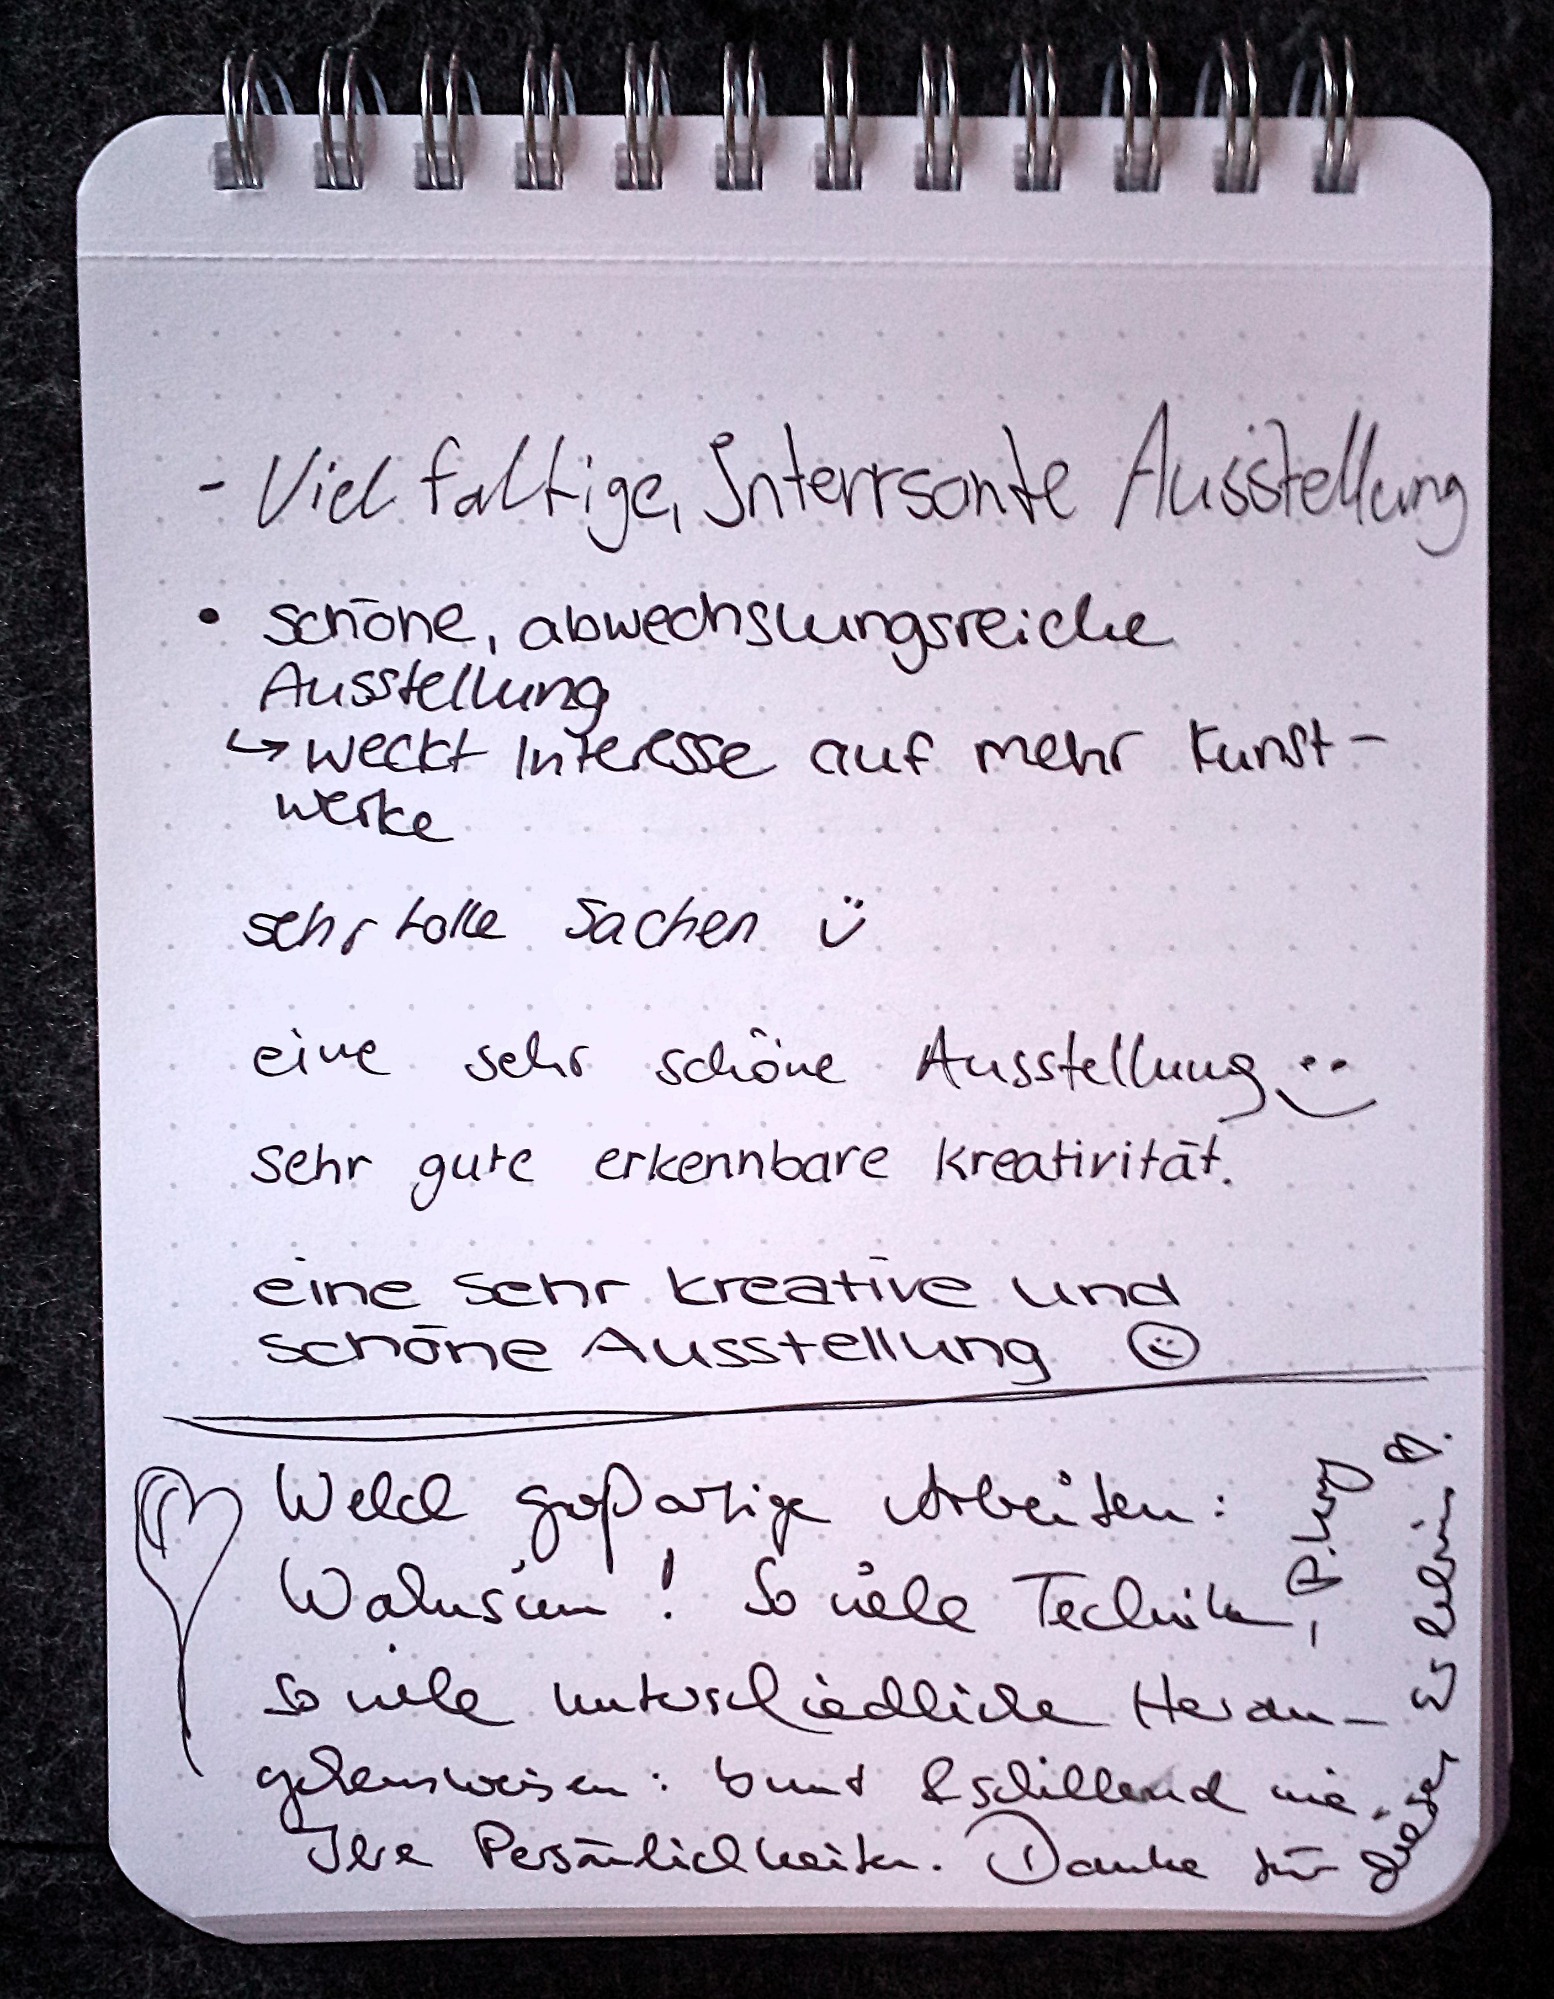 - Vielfaltige, Interrsante Ausstellung
• schöne, abwechslungsreiche
Ausstellung
↳ weckt Interesse auf mehr Kunst-
werke
sehr tolle Sachen ü
eine sehr schöne Ausstellung
sehr gute erkennbare Kreativität.
eine sehr kreative und
schöne Ausstellung ☺
Welch großartige Arbeiten:
Wahnsinn! So viele Techniken,
so viele unterschiedliche Heran-
gehensweisen: bunt & schillernd wie
Ihre Persönlichkeiten. Danke für
dieses Erlebnis